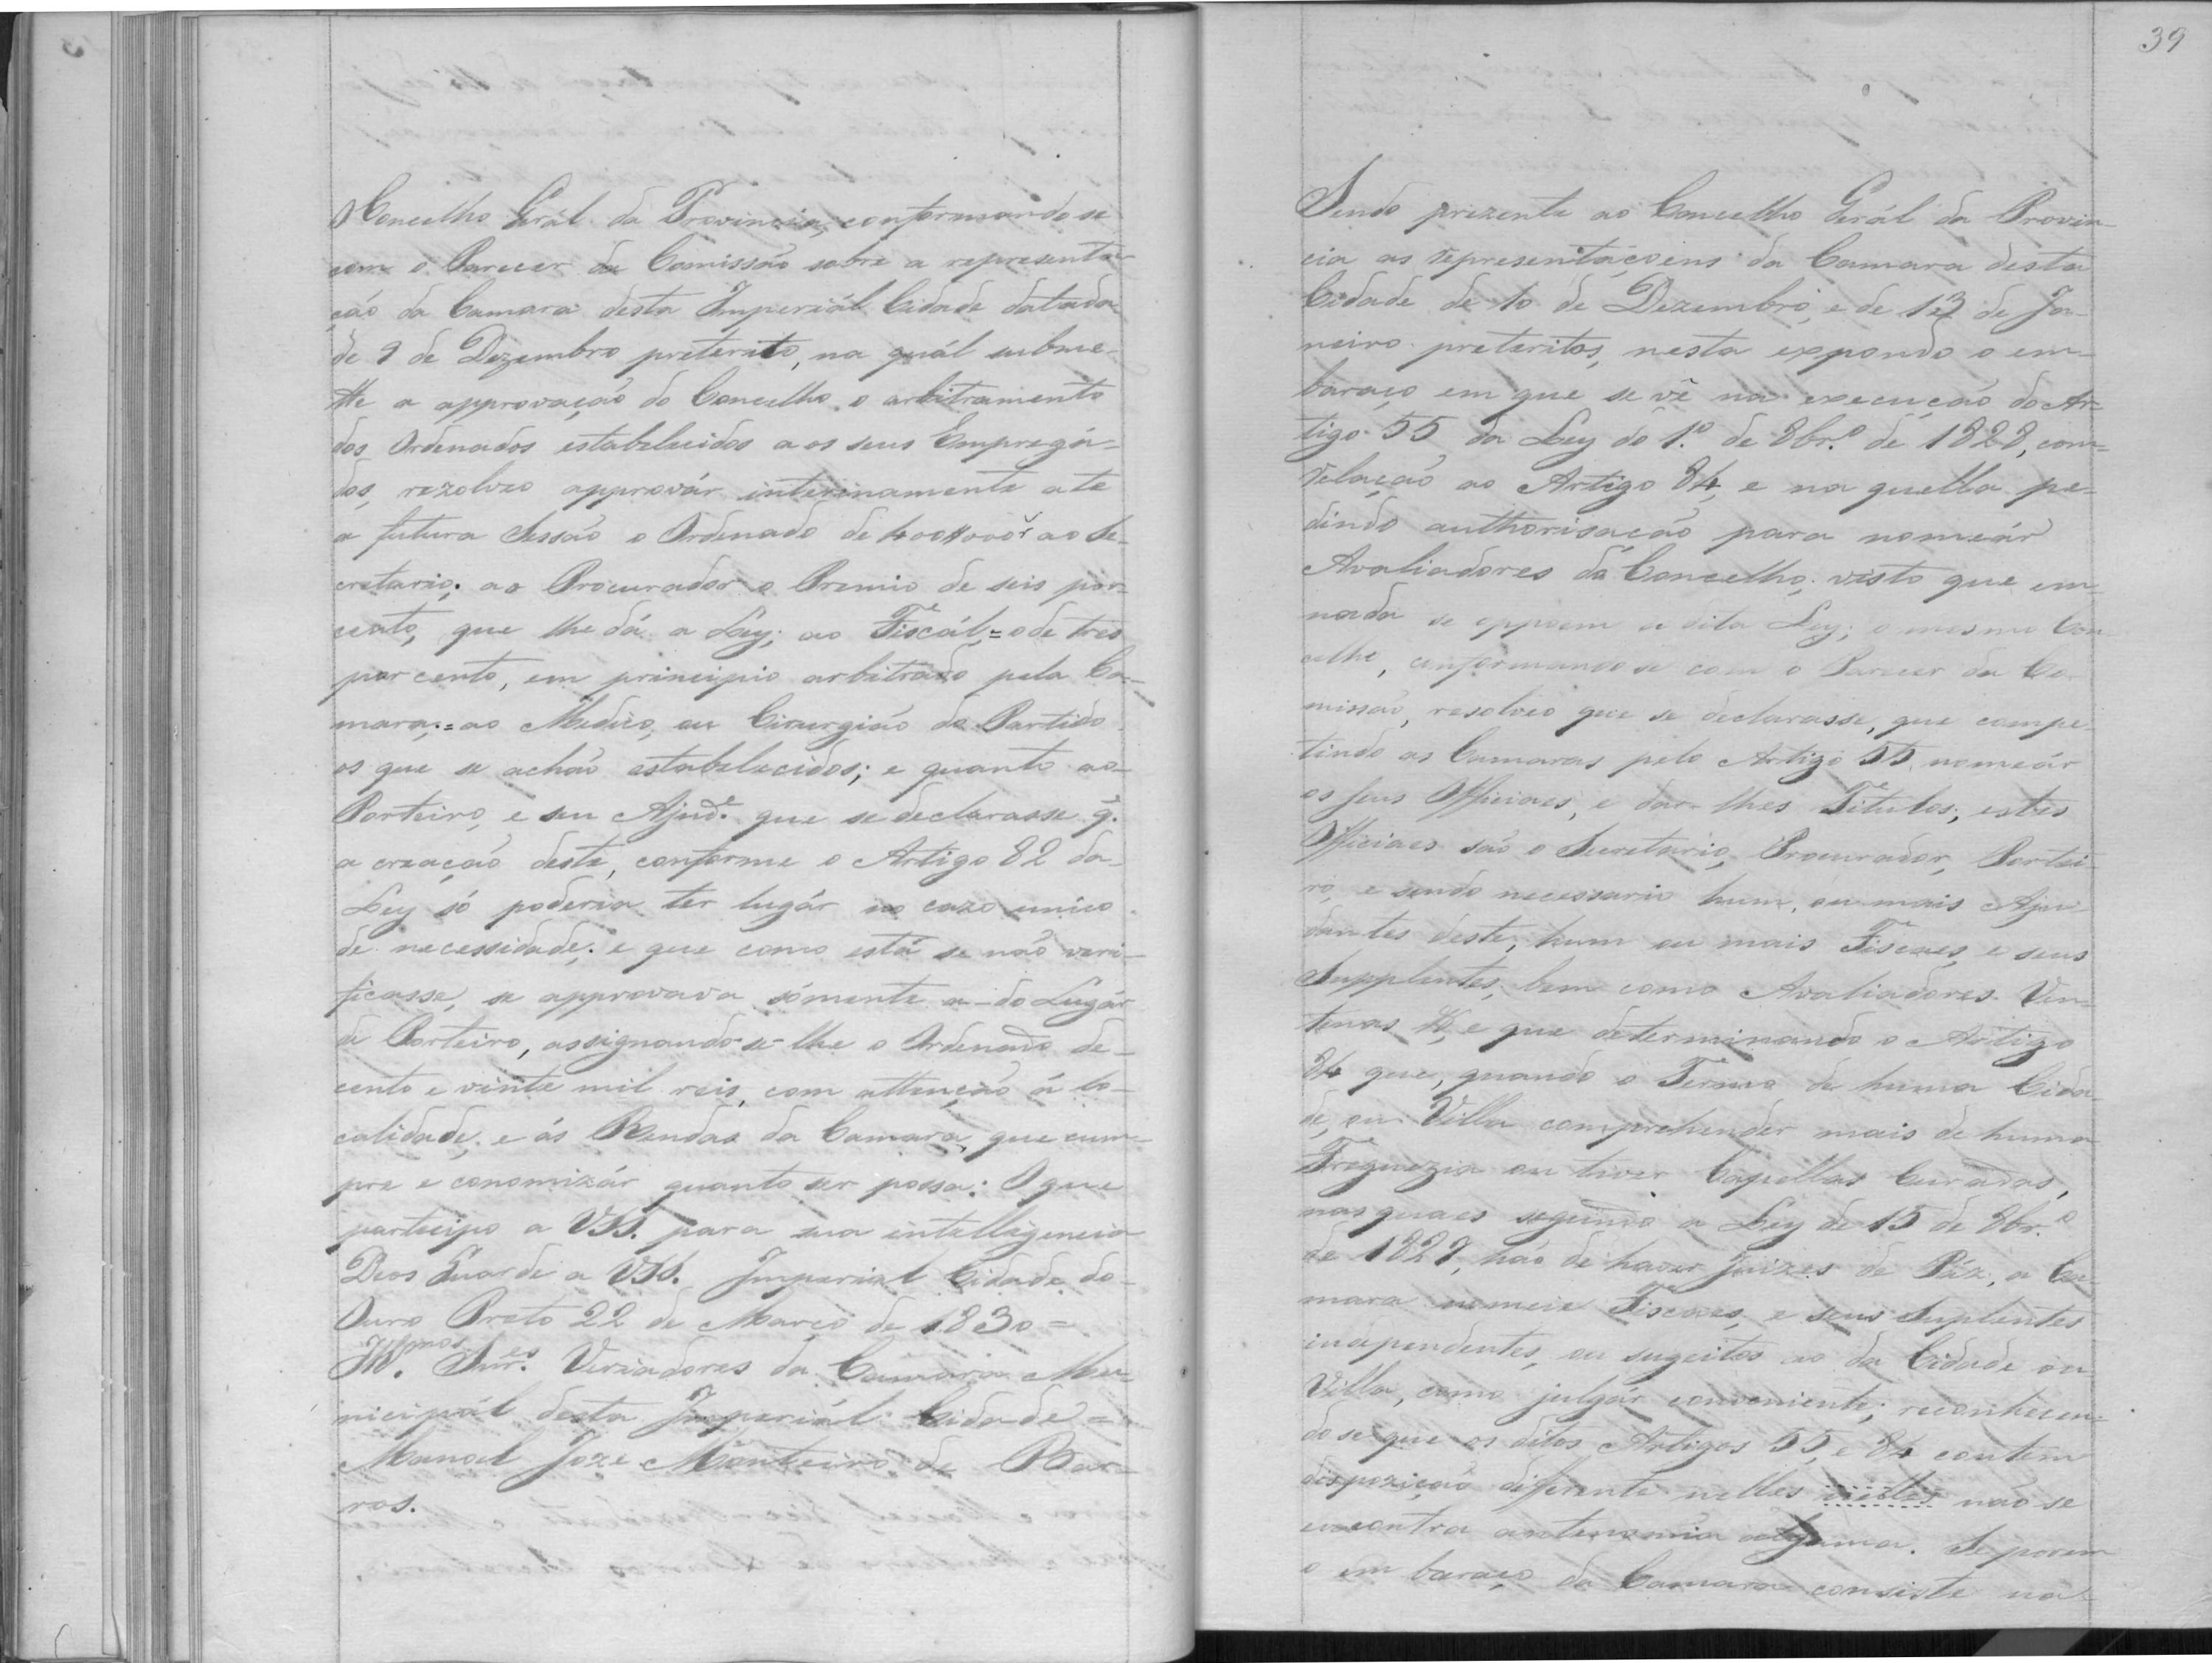 O Concelho Gerál da Provincia, conformando se
com o Parecer da Comissão sobre a representa-
ção da Camara desta Imperiál Cidade datada
de 9 de Dezembro preterito, na quál subme-
tte a approvação do Concelho o arbitramento
dos Ordenados estabelecidos aos seus Empregá-
dos, rezolveo approvár interinamente ate
a futura Sessão o Ordenado de 400#000 rˢ ao Se-
cretario; ao Procurador o Premio de seis por
cento, que lhe dá a Ley; ao Fiscál = o de tres
por cento, em principio arbitrado pela Ca-
mara; = ao Medico, ou Cirurgião do Partido
os que se achão estabelecidos; e quanto ao
Porteiro, e seu Ajudᵉ. que se declarasse q̃.
a creação deste, conforme o Artigo 82 da
Ley só poderia ter lugár no cazo unico
de necessidade; e que como está se não veri-
ficasse, se approvava sómente a do Lugár
de Porteiro, assignando-se-lhe o Ordenado de
cento e vinte mil reis, com attenção á lo-
calidade, e ás Rendas da Camara, que cum-
pre economizár quanto ser possa: O que
participo a VSS. para sua intelligencia
Deos Guarde a VSS. Imperial Cidade do
Ouro Preto 22 de Março de 1830 =
Illᵐᵒˢ. Snrᵉˢ. Veriadores da Camara Mu-
nicipál desta Imperiál Cidade =
Manoel Joze Monteiro de Bar-
ros.
39
Sendo prezente ao Concelho Gerál da Provin-
cia as representaçoens da Camara desta
Cidade de 10 de Dezembro, e de 13 de Ja-
neiro preteritos, nesta expondo o em-
baraço em que se vê na execução do Ar-
tigo 55 da Ley do 1.º de 8br.º de 1828, com
relação ao Artigo 84, e na quella pe-
dindo authorisacão para nomeár
Avaliadores do Concelho, visto que em
nada se oppoem a dita Ley; o mesmo Con-
celho, conformando se com o Parecer da Co-
missão, resolveo que se declarasse, que compe-
tindo as Camaras pelo Artigo 55 nomeár
os seus Officiaes, e dar-lhes Titulos, estes
Officiaes são o Secretario, Procurador, Portei-
ro, e sendo necessario hum, ou mais Aju-
dantes deste, hum ou mais Fiscaes, e seus
Supplentes, bem como Avaliadores Vin-
tenas &, e que determinando o Artigo
84 que, quando o Termo de huma Cida-
de, ou Villa comprehender mais de huma
Freguezia ou tiver Capellas Curadas,
nas quaes segundo a Ley de 15 de 8br.º
de 1827, hão de haver Juizes de Páz, a Ca-
mara nomeie Fiscaes, e seus Suplentes
independentes, ou sugeitos ao da Cidade ou
Villa, como julgár conveniente; reconhecen-
do se que os ditos Artigos 55, e 84 contem
dispozição differente nelles não se
encontra antenomia alguma. Se porem
o embaraço da Camara consiste na